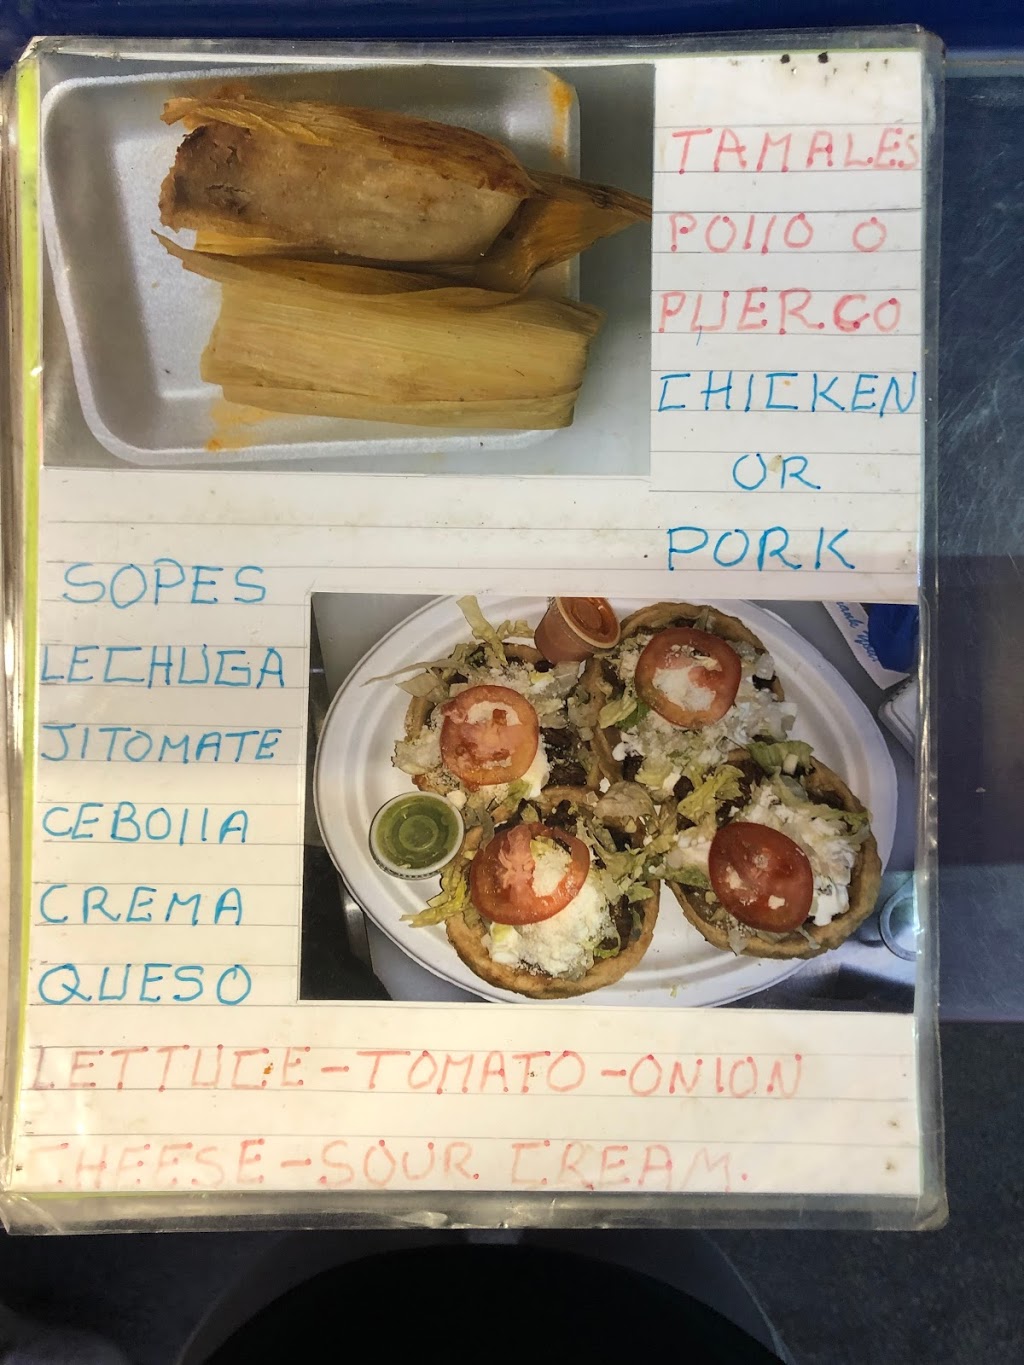 TAMALES
POllO O
PUERCO
CHICKEN
OR
PORK
SOPES
LECHUGA
JITOMATE
CEBOllA
CREMA
QUESO
LETTUCE-TOMATO-ONION
CHEESE-SOUR CREAM.